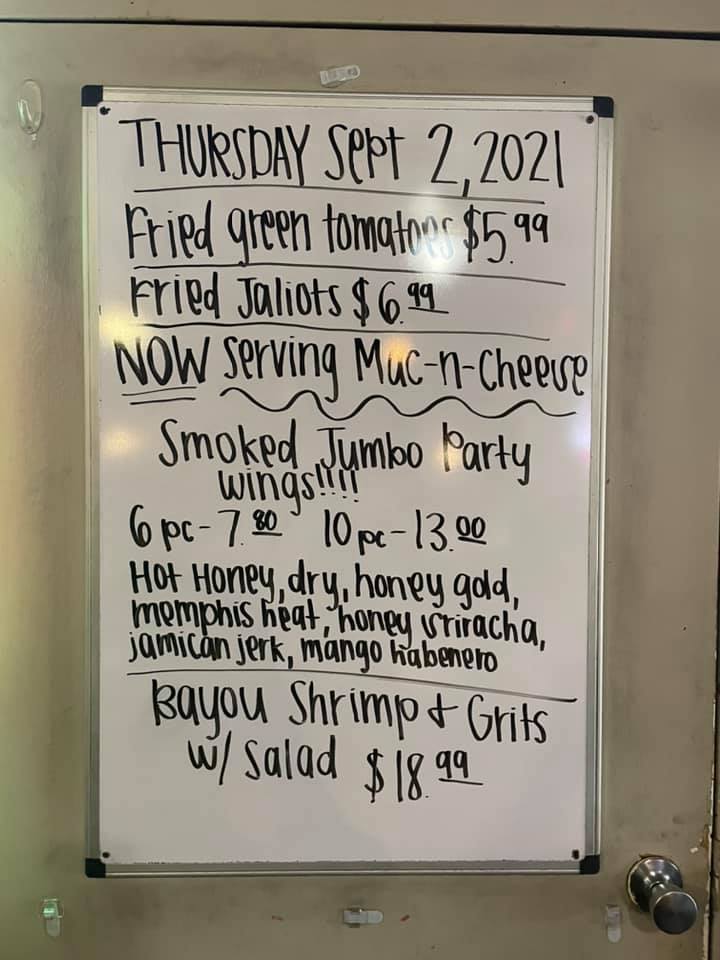 THURSDAY Sept 2, 2021
Fried green tomatoes $5.99
Fried Jaliots $6.99
NOW Serving Mac-n-Cheese
Smoked Jumbo Party
wings!!!!
6 pc - 7.80 10 pc - 13.00
Hot Honey, dry, honey gold,
memphis heat, honey sriracha,
jamican jerk, mango habenero
Bayou Shrimp + Grits
w/ Salad $18.99